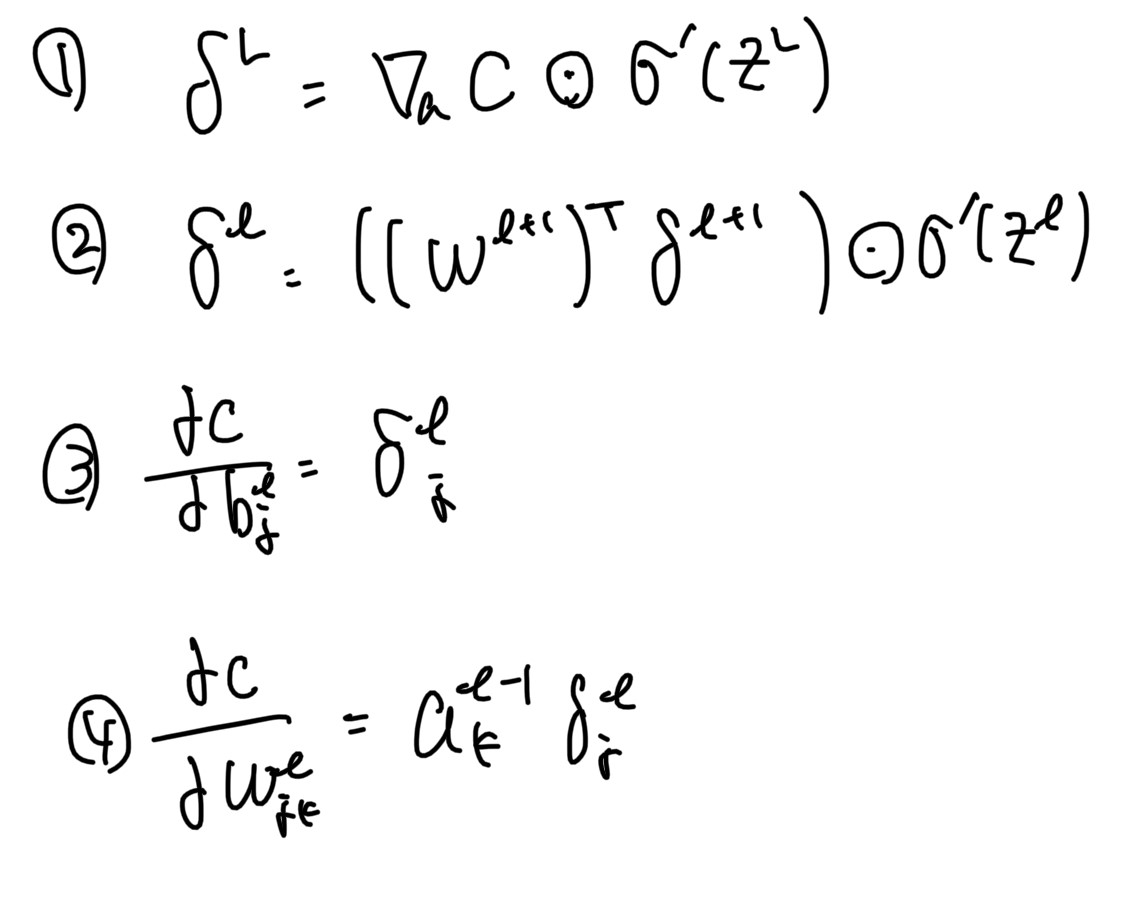 ① δ^L = ∇_a C ⊙ σ'(z^L)
② δ^l = ((w^{l+1})^T δ^{l+1}) ⊙ σ'(z^l)
③ ∂C/∂b_j^l = δ_j^l
④ ∂C/∂w_{jk}^l = a_k^{l-1} δ_j^l